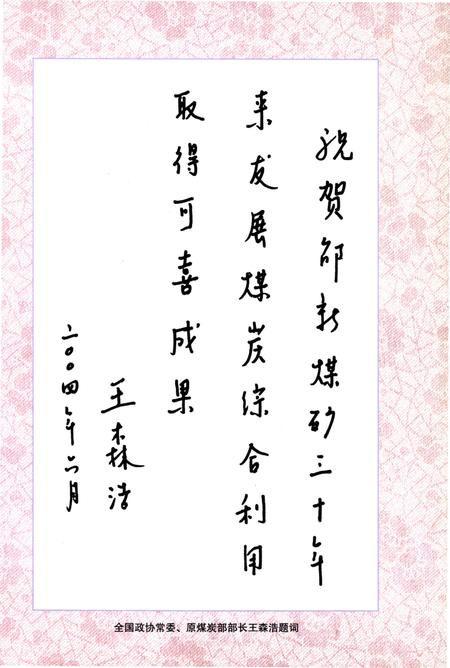 祝贺邵新煤矿三十年
来发展煤炭综合利用
取得可喜成果
王森浩
二〇〇四年六月
全国政协常委、原煤炭部部长王森浩题词